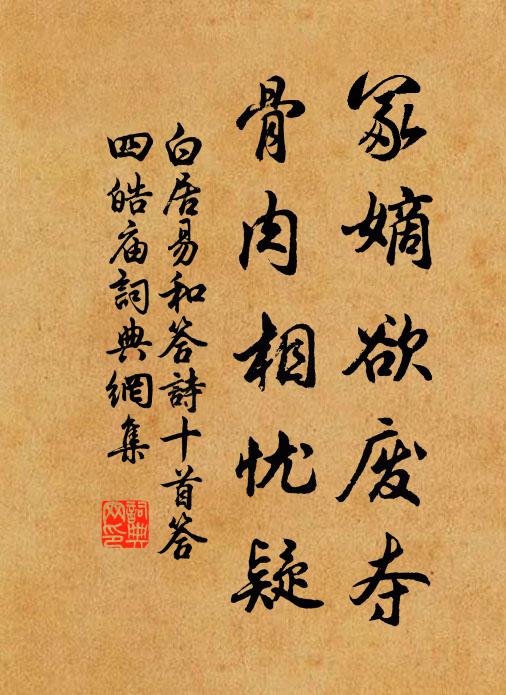 冢嫡欲废夺
骨肉相忧疑
白居易和答詩十首答
四皓庙詞典網集
詞典网印